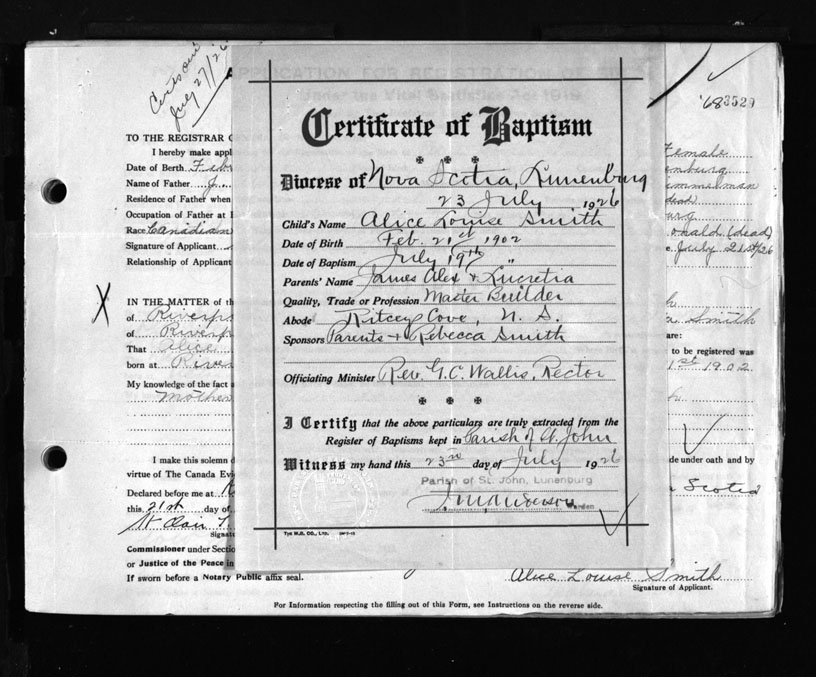 Certis om
July 27/26
'68 3529
APPLICATION FOR REGISTRATION OF
Under the Vital Statistics Act 1919
Certificate of Baptism
Diocese of Nova Scotia, Lunenburg
23 July 1926
Child's Name Alice Louise Smith
Date of Birth Feb. 21st 1902
Date of Baptism July 19th "
Parents' Name James Alex & Lucretia
Quality, Trade or Profession Master Builder
Abode Ritcey Cove, N. S.
Sponsors Parents & Rebecca Smith
Officiating Minister Rev. G. C. Wallis, Rector
I Certify that the above particulars are truly extracted from the
Register of Baptisms kept in Parish of St. John
Witness my hand this 23rd day of July 1926
Parish of St. John, Lunenburg
Warden
Tye M.B. CO., LTD.
TO THE REGISTRAR
I hereby make appl
Date of Birth Feb
Name of Father J
Residence of Father when
Occupation of Father at
Race Canadian
Signature of Applicant
Relationship of Applicant
X IN THE MATTER of th
of Riverp
of Riverp
That Alice
born at River
My knowledge of the fact a
Mother
I make this solemn d
virtue of The Canada Evi
Declared before me at
this 21st day of
St Clair
Signatu
Commissioner under Sectio
or Justice of the Peace in
If sworn before a Notary Public affix seal.
Female
enburg
immerman
dead
urg
onald (dead)
July 21st/26
Smith
are:
to be registered was
1st 1902.
de under oath and by
Scotia
Alice Louise Smith
Signature of Applicant.
For Information respecting the filling out of this Form, see Instructions on the reverse side.